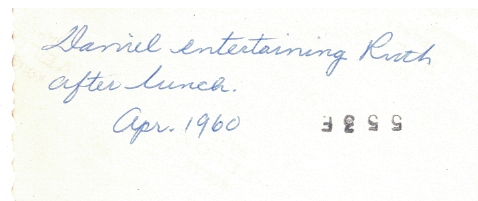 Daniel entertaining Ruth
after lunch.
Apr. 1960